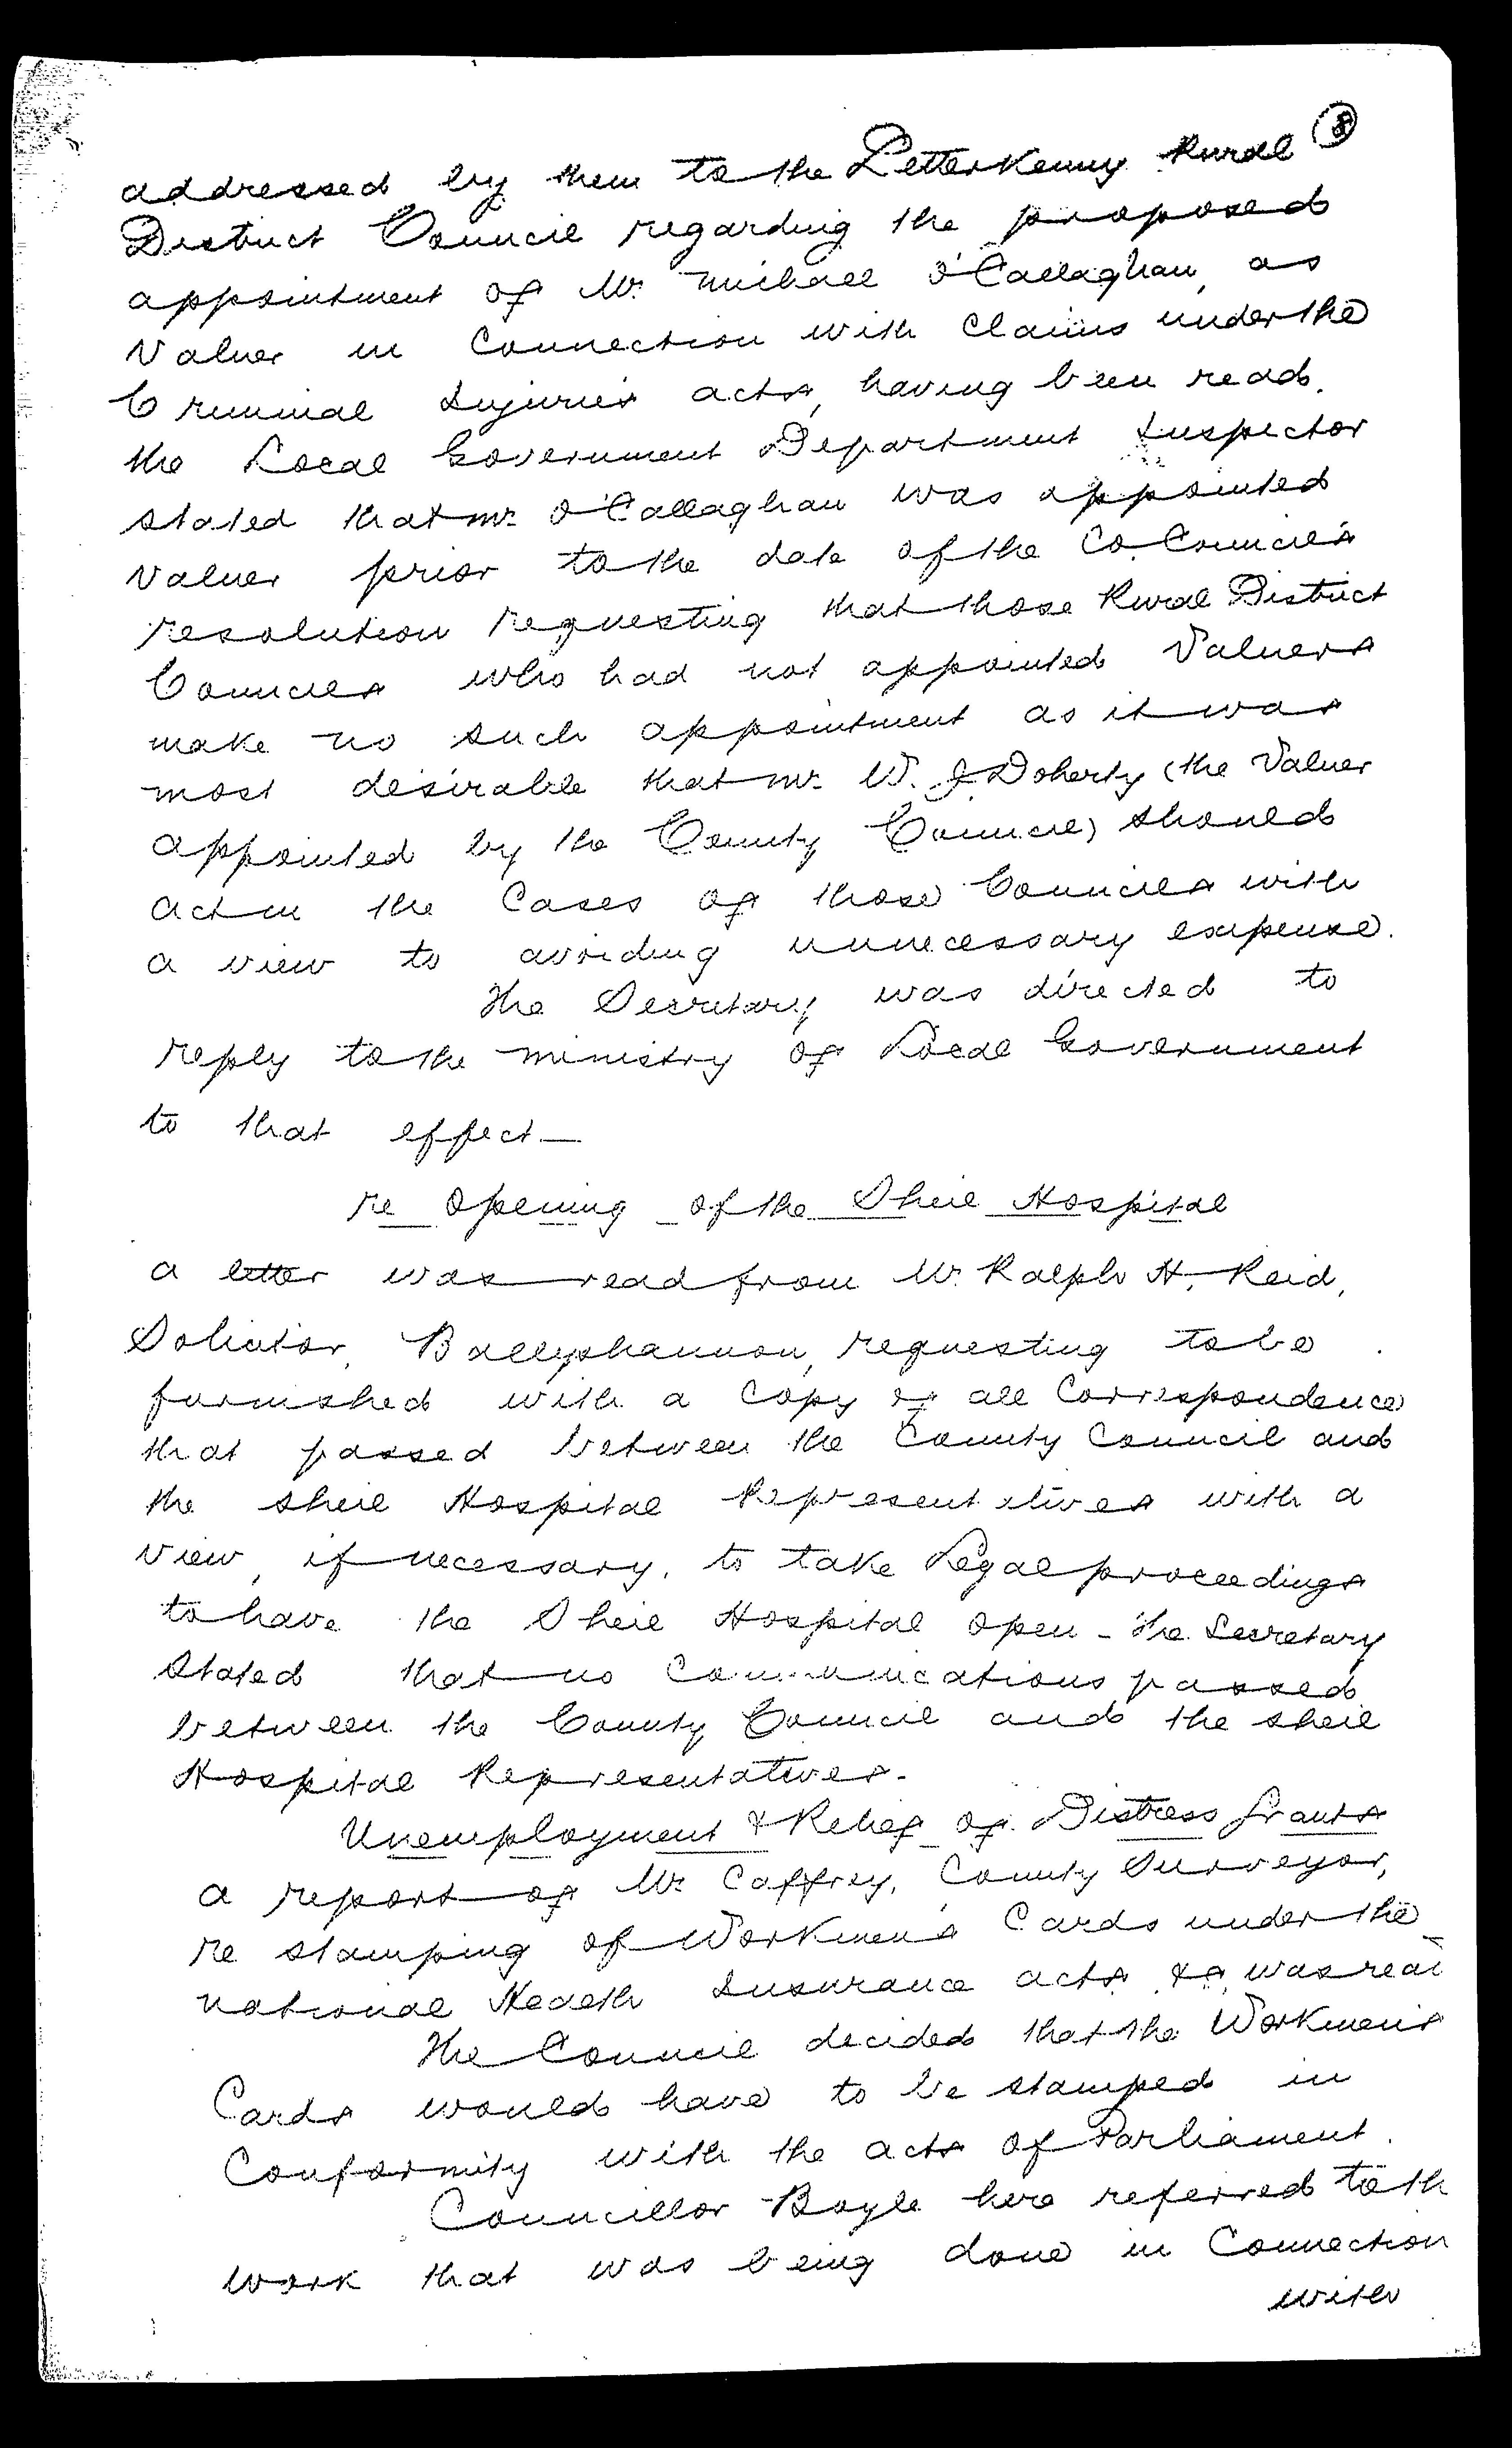 8
addressed by them to the Letterkenny Rural
District Council regarding the proposed
appointment of Mr. Michael O'Callaghan, as
Valuer in Connection with Claims under the
Criminal Injuries acts, having been read.
the Local Government Department Inspector
stated that Mr. O'Callaghan was appointed
Valuer prior to the date of the Co. Council's
resolution requesting that those Rural District
Councils who had not appointed Valuers
make no such appointment as it was
most desirable that Mr. W. J. Doherty (the Valuer
appointed by the County Council) should
act in the Cases of those Councils with
a view to avoiding unnecessary expense.
The Secretary was directed to
reply to the Ministry of Local Government
to that effect—
re Opening of the Sheil Hospital
a letter was read from Mr. Ralph H. Reid,
Solicitor, Ballyshannon, requesting to be
furnished with a Copy of all Correspondence
that passed between the County Council and
the Sheil Hospital Representatives with a
view, if necessary, to take Legal proceedings
to have the Sheil Hospital open - The Secretary
stated that no Communications passed
between the County Council and the Sheil
Hospital Representatives.
Unemployment & Relief of Distress Grants
a report of Mr Caffrey, County Surveyor,
re stamping of Workmen's Cards under the
National Health Insurance acts &c was read
The Council decided that the Workmen's
Cards would have to be stamped in
Conformity with the acts of Parliament.
Councillor Boyle here referred to th
work that was being done in Connection
with